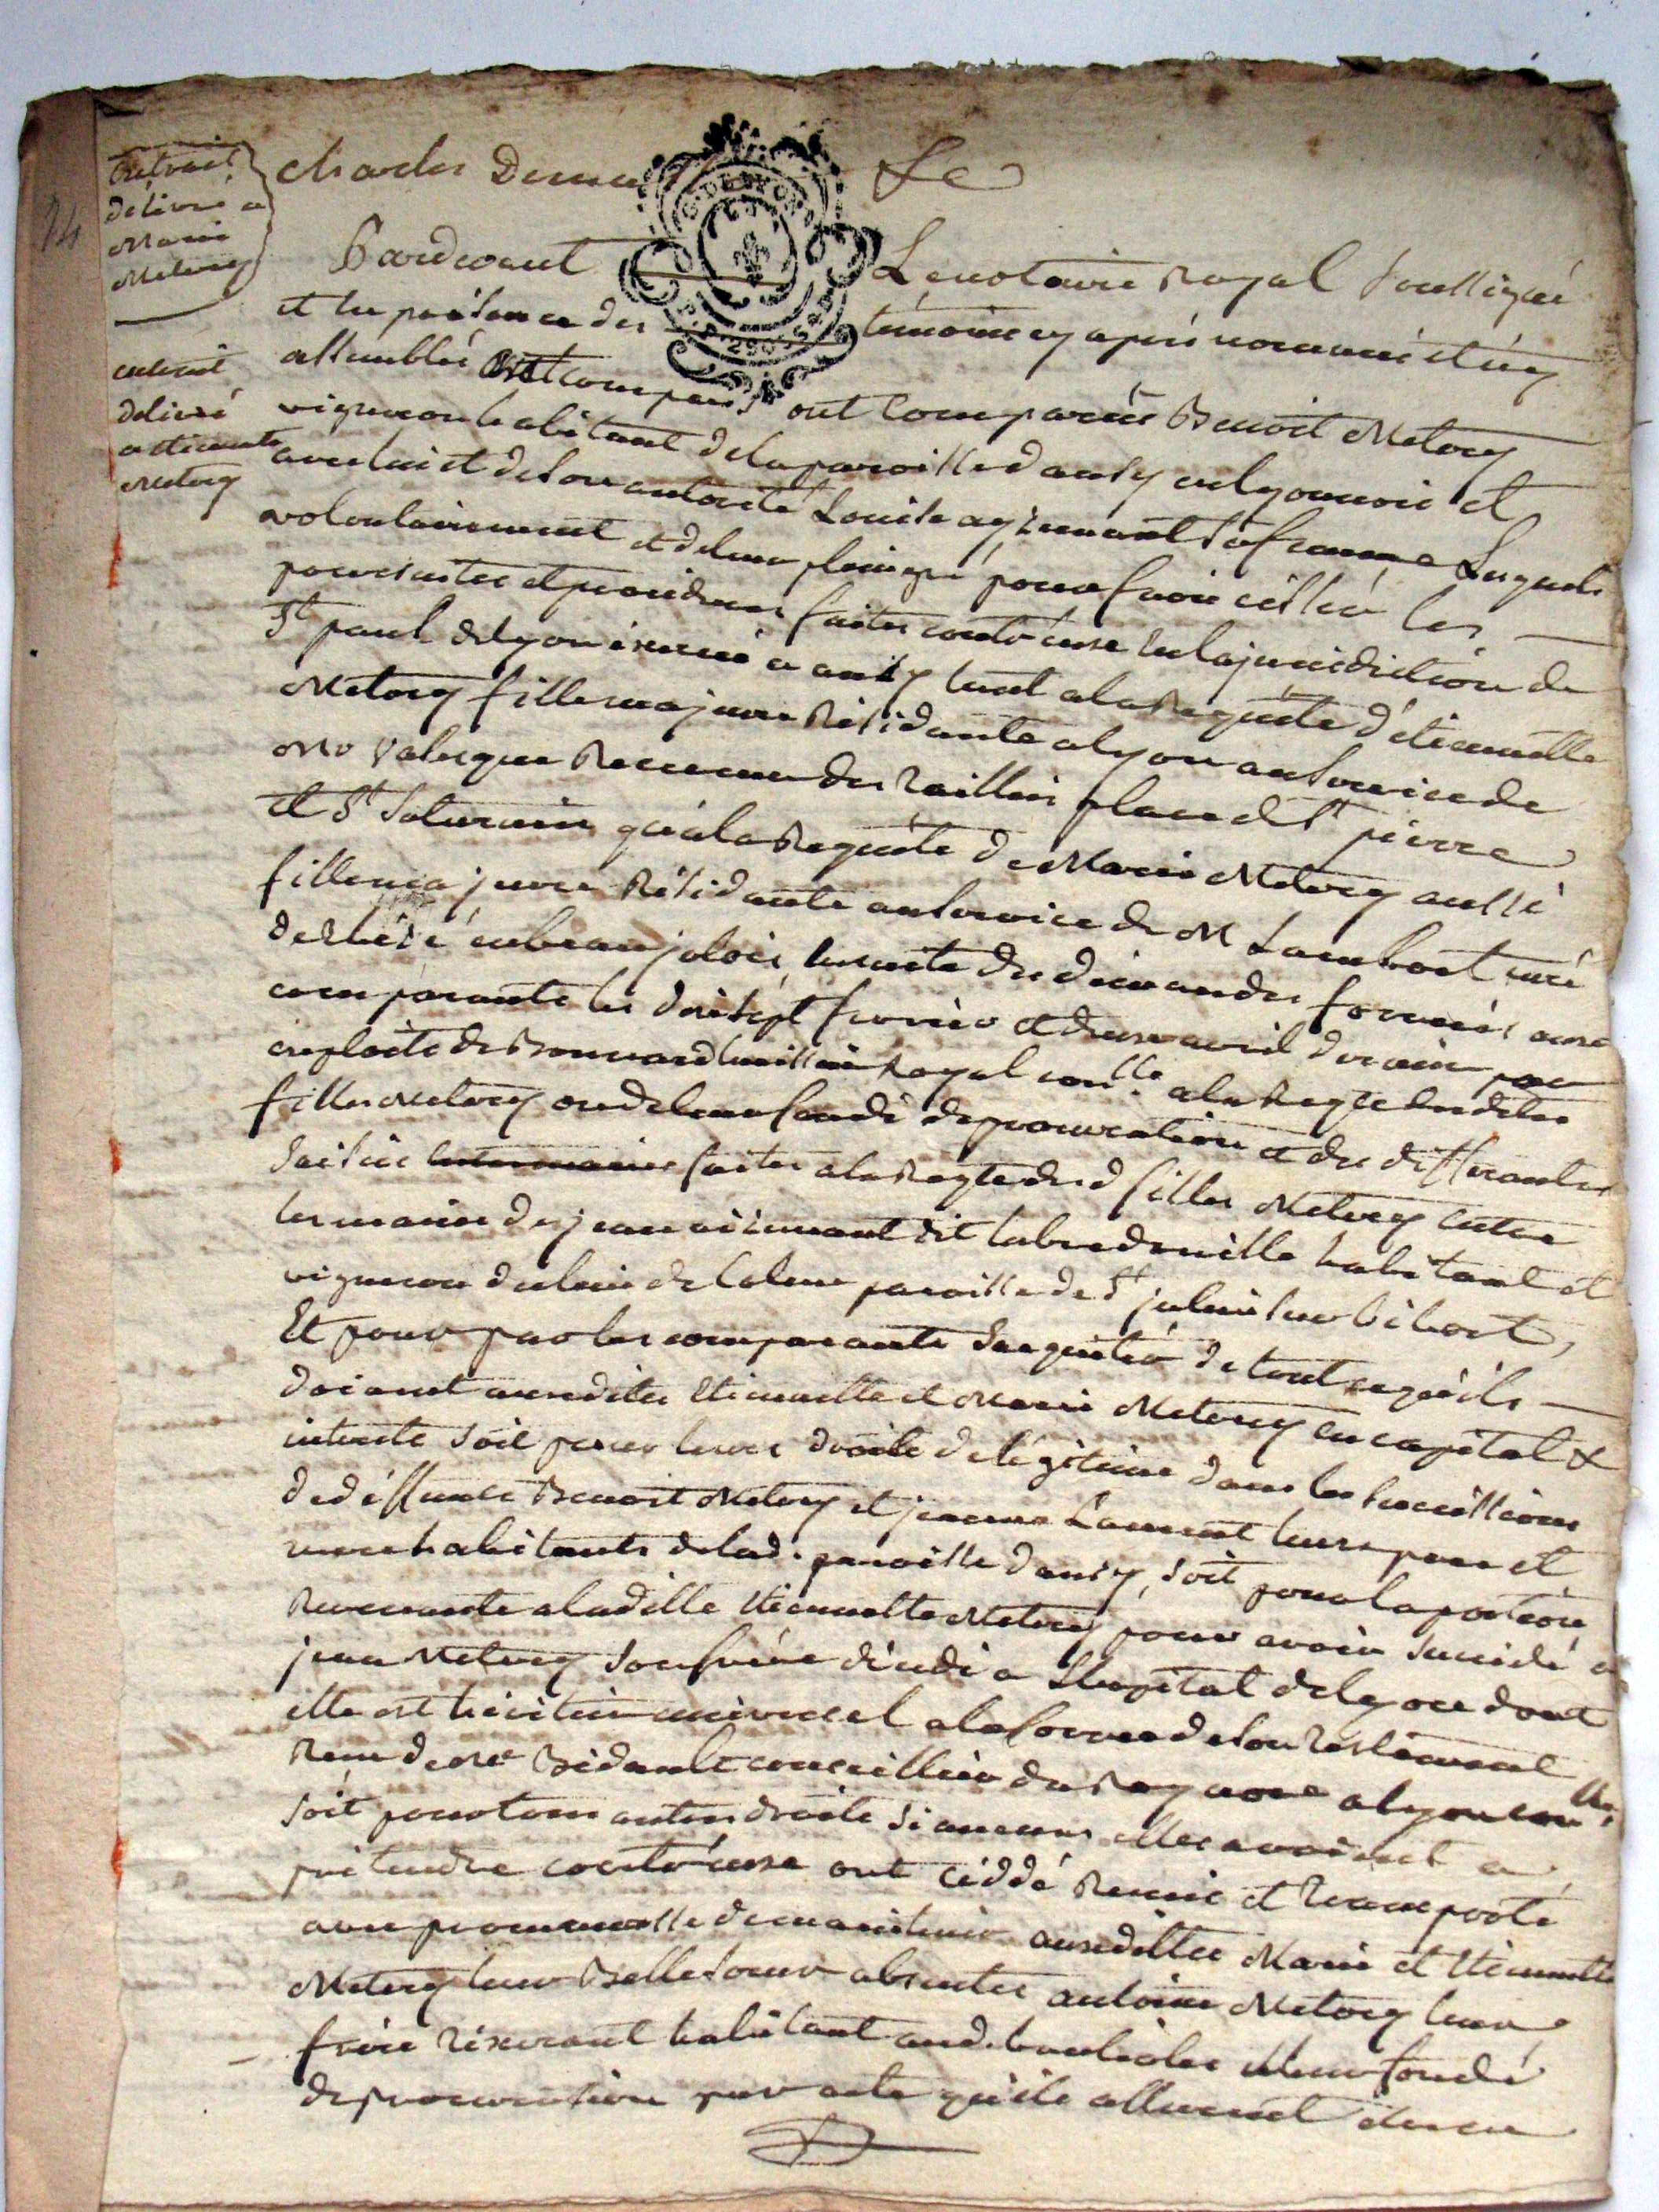 24
Extrait
delivré a
Marie
Metery
extrait
delivré
a etiennette
Metery
Charles Le
G. DE LYON
Pardevant Le notaire Royal soussigné
et en presance des témoins cy apres nommés et icy
assemblés ont comparus Benoit Metery
vigneron habitant de la paroisse d'ansy en lyonnois et
avec lui et de son autorité Louise ayzemant sa femme Lesquels
volontairement et de leur plein gré pour faire cesser les
poursuites et procedures faites contr'eux en la juridiction de
St paul de lyon exercée a ansy tant a la Requete d'étiennette
Metery fille majeure Résidante a lyon au service de
Mr Valesque Receveur des Tailles place de St pierre
et St Saturnin qu'a la Requete de Marie Metery aussi
fille majeure Résidante au service de M Lambert curé
en beaujolois, ensuite des demandes formées aux
comparants les dix sept fevrier et deux avril dernier par
exploits de Bonnard huissier Royal con.lle a la Reqte desdites
filles Metery ou de leur fondé de procuration et des differantes
saisies faites a la Reqte desd filles Metery entre
les mains de jean aizemant dit labredenille habitant et
vigneron du lieu de paroisse de St julien sur bibost,
Et pour par les comparants s'acquiter de tout ce qu'ils
doivent auxdites Etiennette et Marie Metery en capital &
interets soit pour leurs droits de légitime dans les successions
de deffunts Benoit Metery et jeanne Laurent leurs pere et
mere habitants de lad. paroisse d'ansy, soit pour la portion
Revenante a ladille Etiennette Metery pour avoir succedé a
jean Metery son frere décedé a l'hopital de lyon dont
elle est héritiere universel a la forme de son testament
Recu de Me Bidault conseiller du Roy nore a lyon con.lle
soit pour tous autres droits si aucuns elles avoient a
prétendre contr'eux ont céddé Remis et transporté
avec promesse de maintenir auxdittes Marie et Etiennette
Metery leur Belle soeur absentes antoine Metery leur
frere habitant aud. leur fondé
de procuration par acte qu'ils assurent